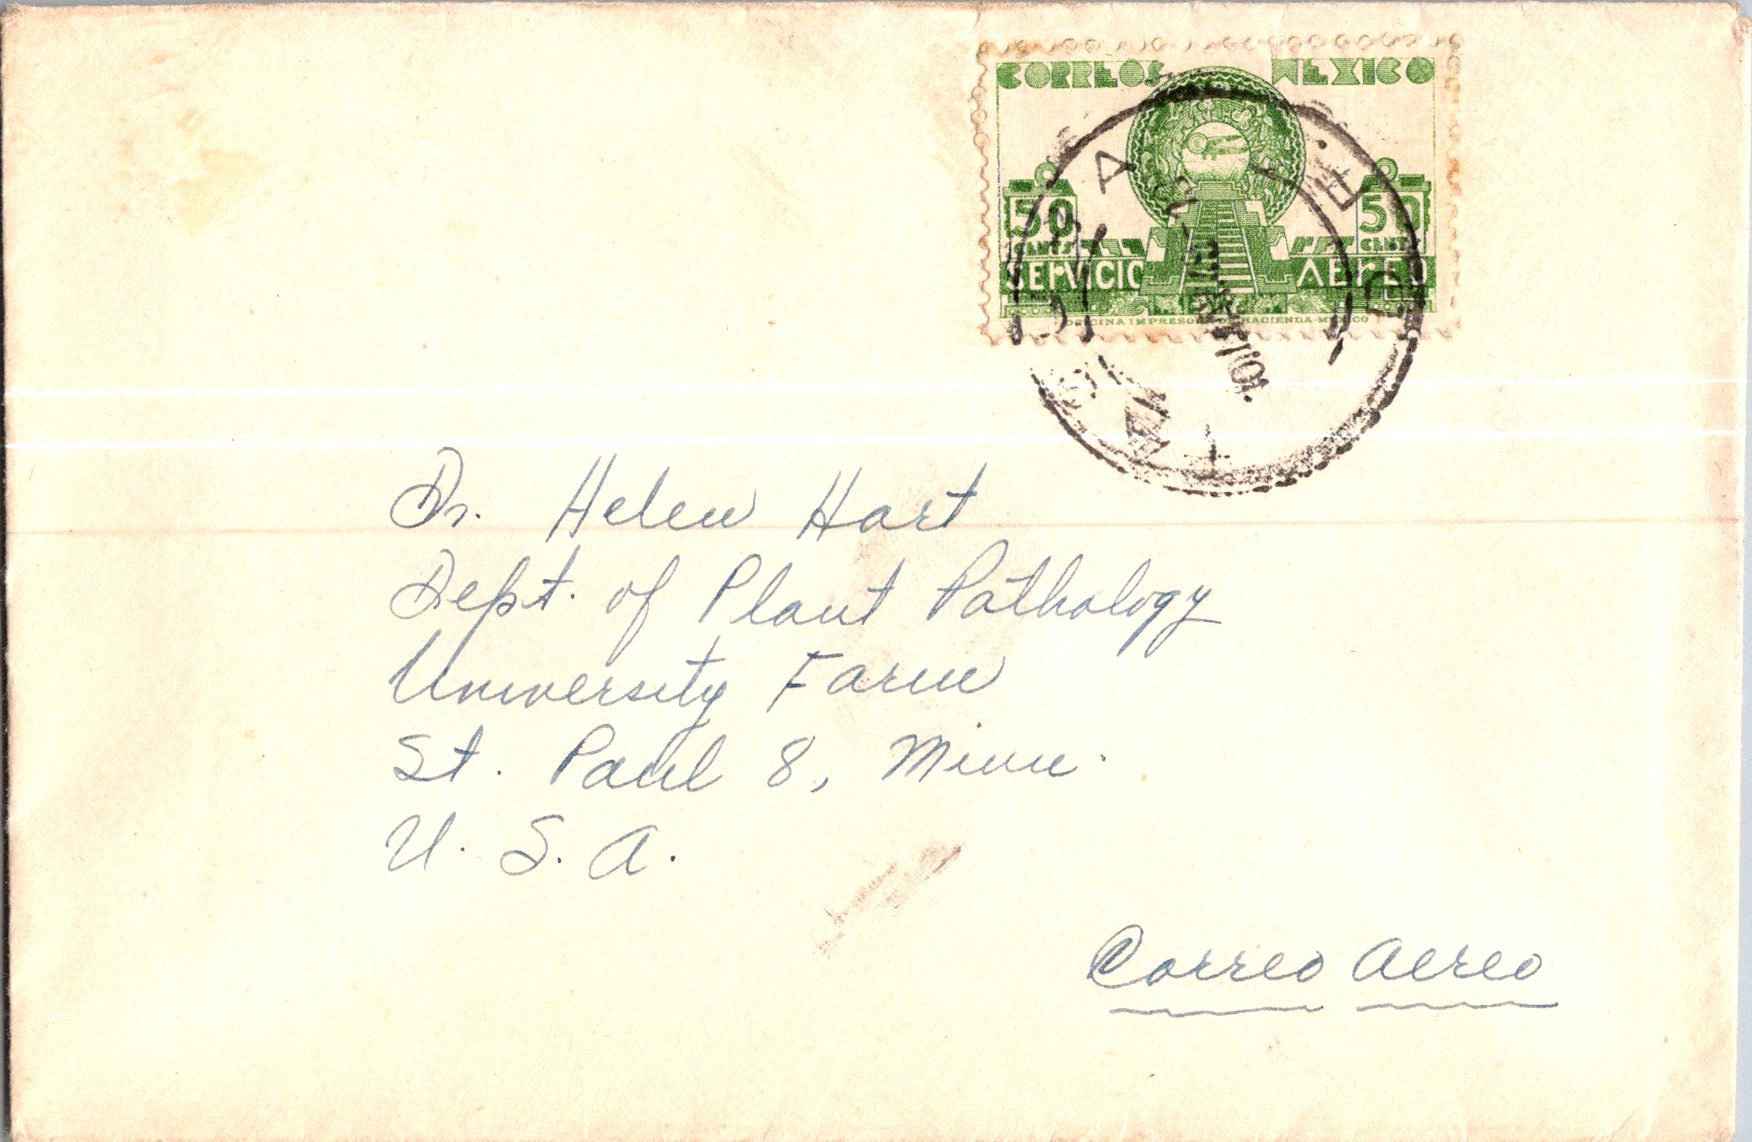 CORREOS MEXICO
50 50
CENTS CENTS
SERVICIO AEREO
OFICINA IMPRESORA DE HACIENDA-MEXICO
Dr. Helen Hart
Dept. of Plant Pathology
University Farm
St. Paul 8, Minn.
U. S. A.
Correo Aereo